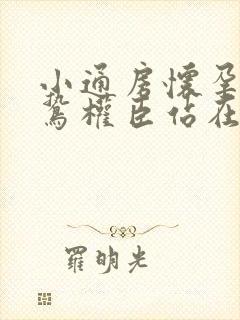 小通房懷孕
鷙權臣佔在
羅明光